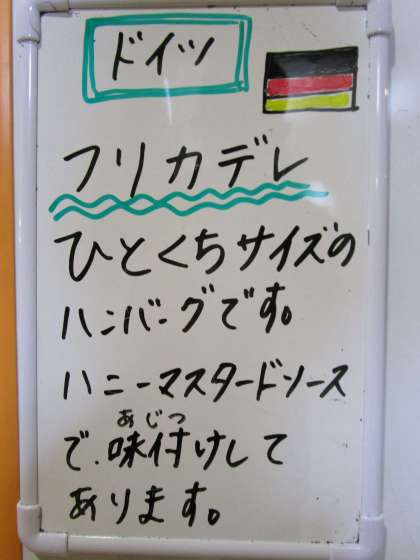 ドイツ
フリカデレ
ひとくちサイズの
ハンバーグです。
ハニーマスタードソース
あじつ
で、味付けして
あります。